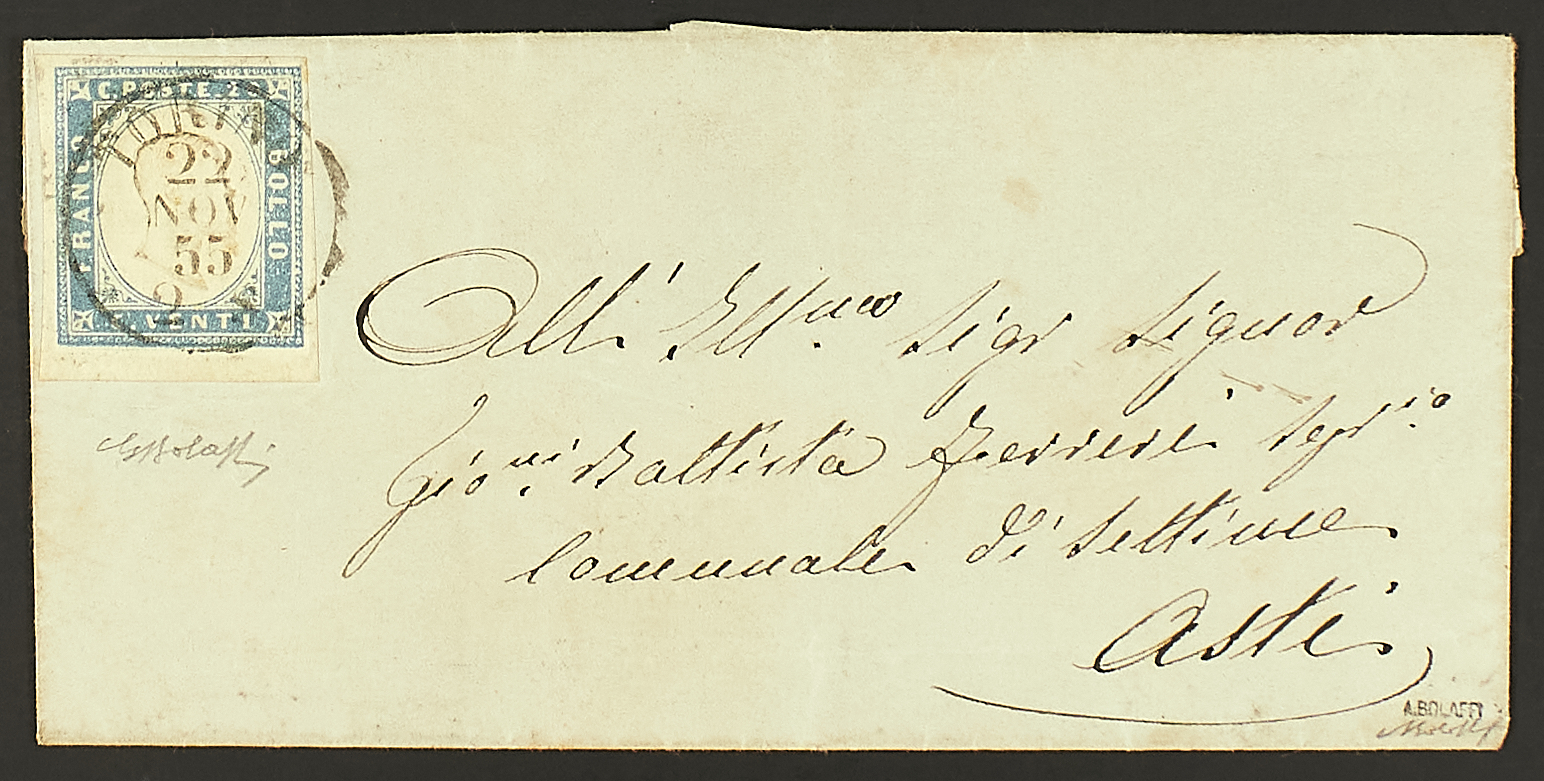 C. POSTE. 20
FRANCO
BOLLO
VENTI
TORINO
22
NOV
55
All' Ill.mo Sigr Signor
Gio.ni Battista Ferreri Segr.io
Comunale di Settime
Asti
GBolaffi
A.BOLAFFI